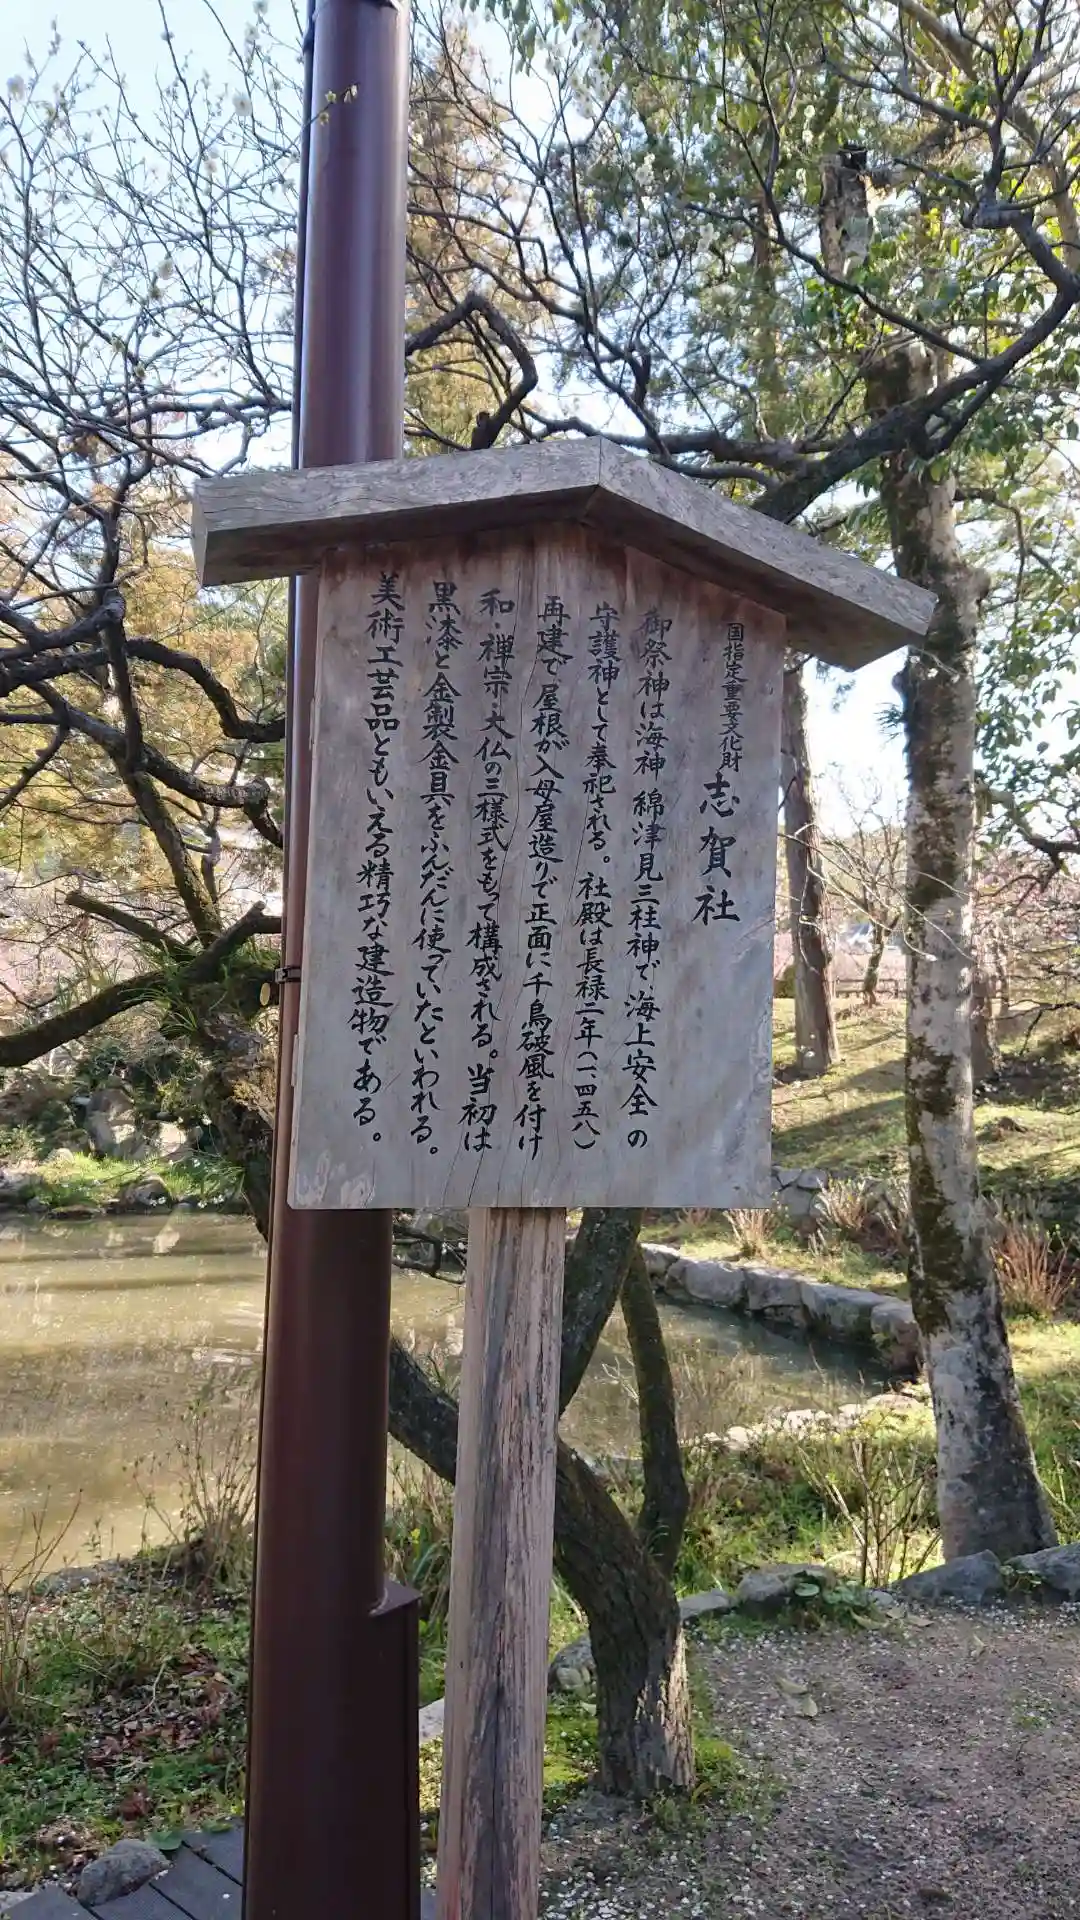 国指定重要文化財 志賀社
御祭神は海神 綿津見三柱神で、海上安全の
守護神として奉祀される。社殿は長禄二年(一、四五八)
再建で屋根が入母屋造りで正面に千鳥破風を付け
和・禅宗・大仏の三様式をもって構成される。当初は
黒漆と金製金具をふんだんに使っていたといわれる。
美術工芸品ともいえる精巧な建造物である。